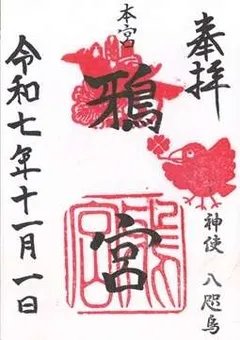 奉拝
本宮
鴉宮
神使 八咫烏
令和七年十一月一日
鴉宮